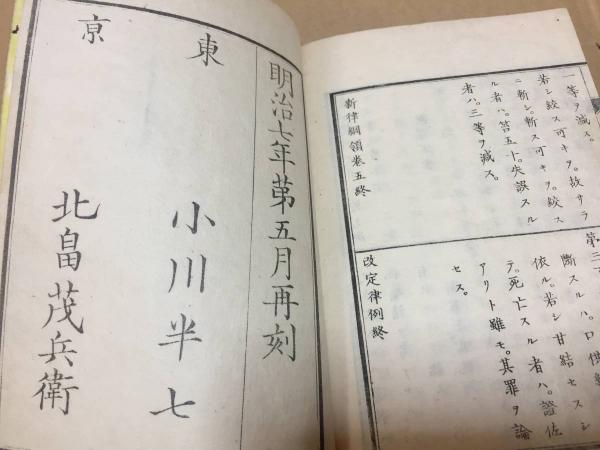 一等ヲ減ス。
若シ絞ス可キヲ。故サラ
ニ斬シ。斬ス可キヲ。絞ス
ル者ハ。笞五十。失誤スル
者ハ。三等ヲ減ス。
新律綱領卷五終
第三
斷スルハ。口供
依ル。若シ甘結セスシ
テ。死亡スル者ハ。證佐
アリト雖モ。其罪ヲ論
セス。
改定律例終
明治七年第五月再刻
東京
小川半七
北畠茂兵衛